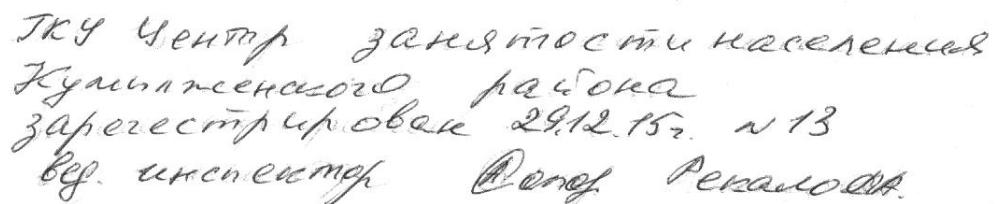 ГКУ Центр занятости населения
Кумылженского района
зарегестрирован 29.12.15г. №13
вед. инспектор Рекало